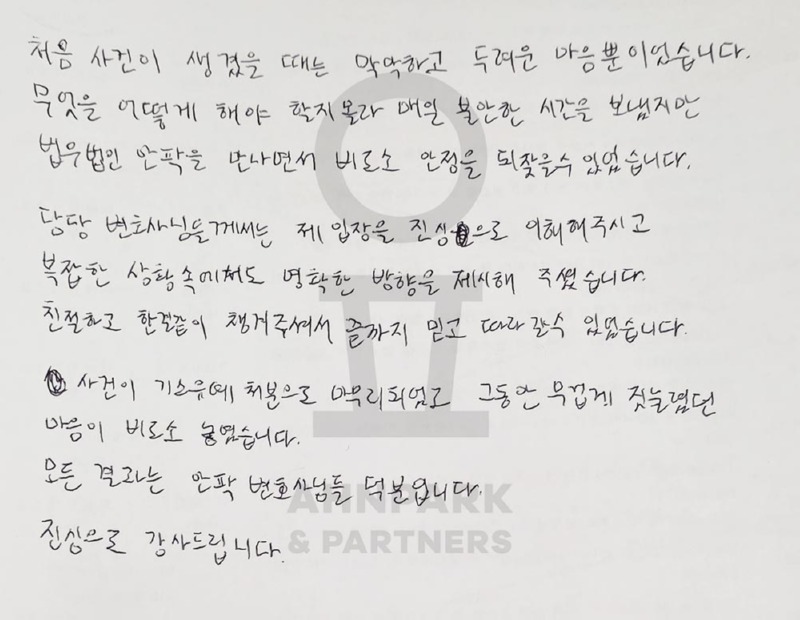 처음 사건이 생겼을 때는 막막하고 두려운 마음뿐이었습니다.
무엇을 어떻게 해야 할지 몰라 매일 불안한 시간을 보냈지만
법무법인 안팍을 만나면서 비로소 안정을 되찾을 수 있었습니다.
담당 변호사님들께서는 제 입장을 진심으로 이해해주시고
복잡한 상황속에서도 명확한 방향을 제시해 주셨습니다.
친절하고 한결같이 챙겨주셔서 끝까지 믿고 따라 갈수 있었습니다.
사건이 기소유예 처분으로 마무리되었고 그동안 무겁게 짓눌렸던
마음이 비로소 놓였습니다.
모든 결과는 안팍 변호사님들 덕분입니다.
진심으로 감사드립니다.
AHNPARK
& PARTNERS